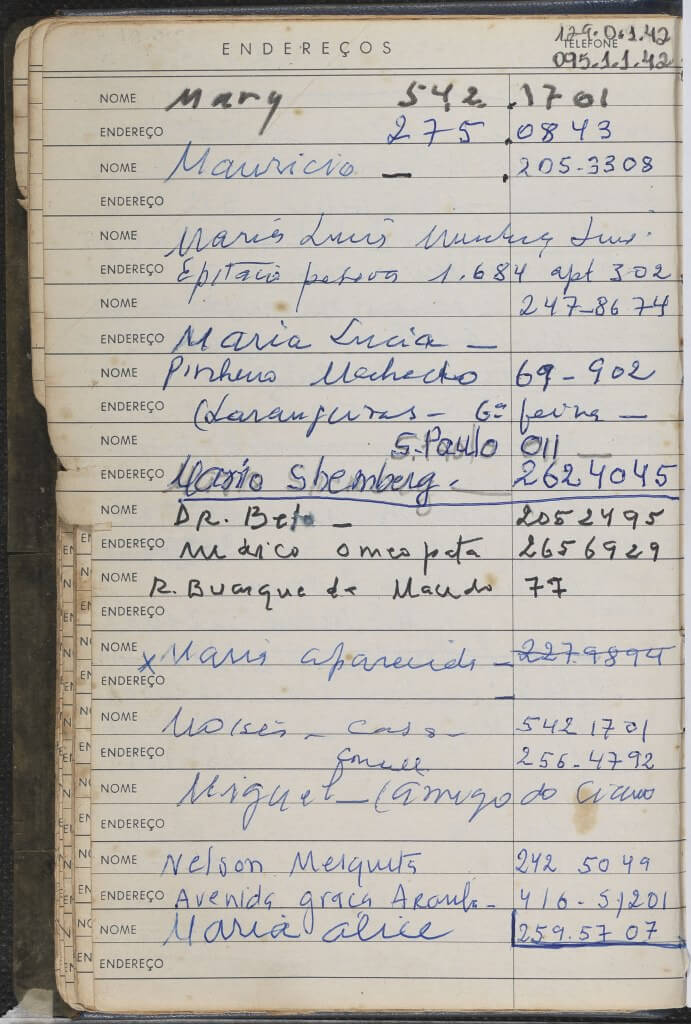 129.0.1.42
ENDEREÇOS TELEFONE
095.1.1.42
NOME Mary 542.1701
ENDEREÇO 275.0843
NOME Mauricio — .205-3308
ENDEREÇO
NOME Maria Luis
ENDEREÇO Epitacio pessoa 1.684 apt 302
NOME 247-8674
ENDEREÇO Maria Lucia —
NOME Pinheiro Machado 69-902
ENDEREÇO (Laranjeiras - 6ª feira —
NOME S. Paulo 011 —
ENDEREÇO Mario Shemberg - 2624045
NOME DR. Beto — 2052495
ENDEREÇO médico omeopata 2656929
NOME R. Buarque de Macedo 77
ENDEREÇO
NOME x Maria aparecida — 227.9894
ENDEREÇO —
NOME Moisés - casa - 542 1701
ENDEREÇO 256-4792
NOME Miguel - (amigo do
ENDEREÇO
NOME Nelson Mesquita 242 5049
ENDEREÇO Avenida graça Aranha - 416-S/1201
NOME Maria alice 259.5707
ENDEREÇO